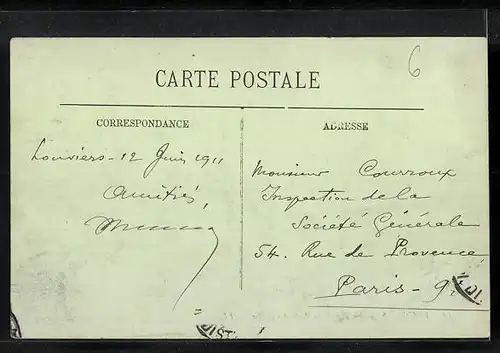 6
CARTE POSTALE
CORRESPONDANCE
ADRESSE
Louviers - 12 Juin 1911
Amitiés,
Monsieur Courroux
Inspection de la
Société Générale
54. Rue de Provence
Paris - 9
DIST.